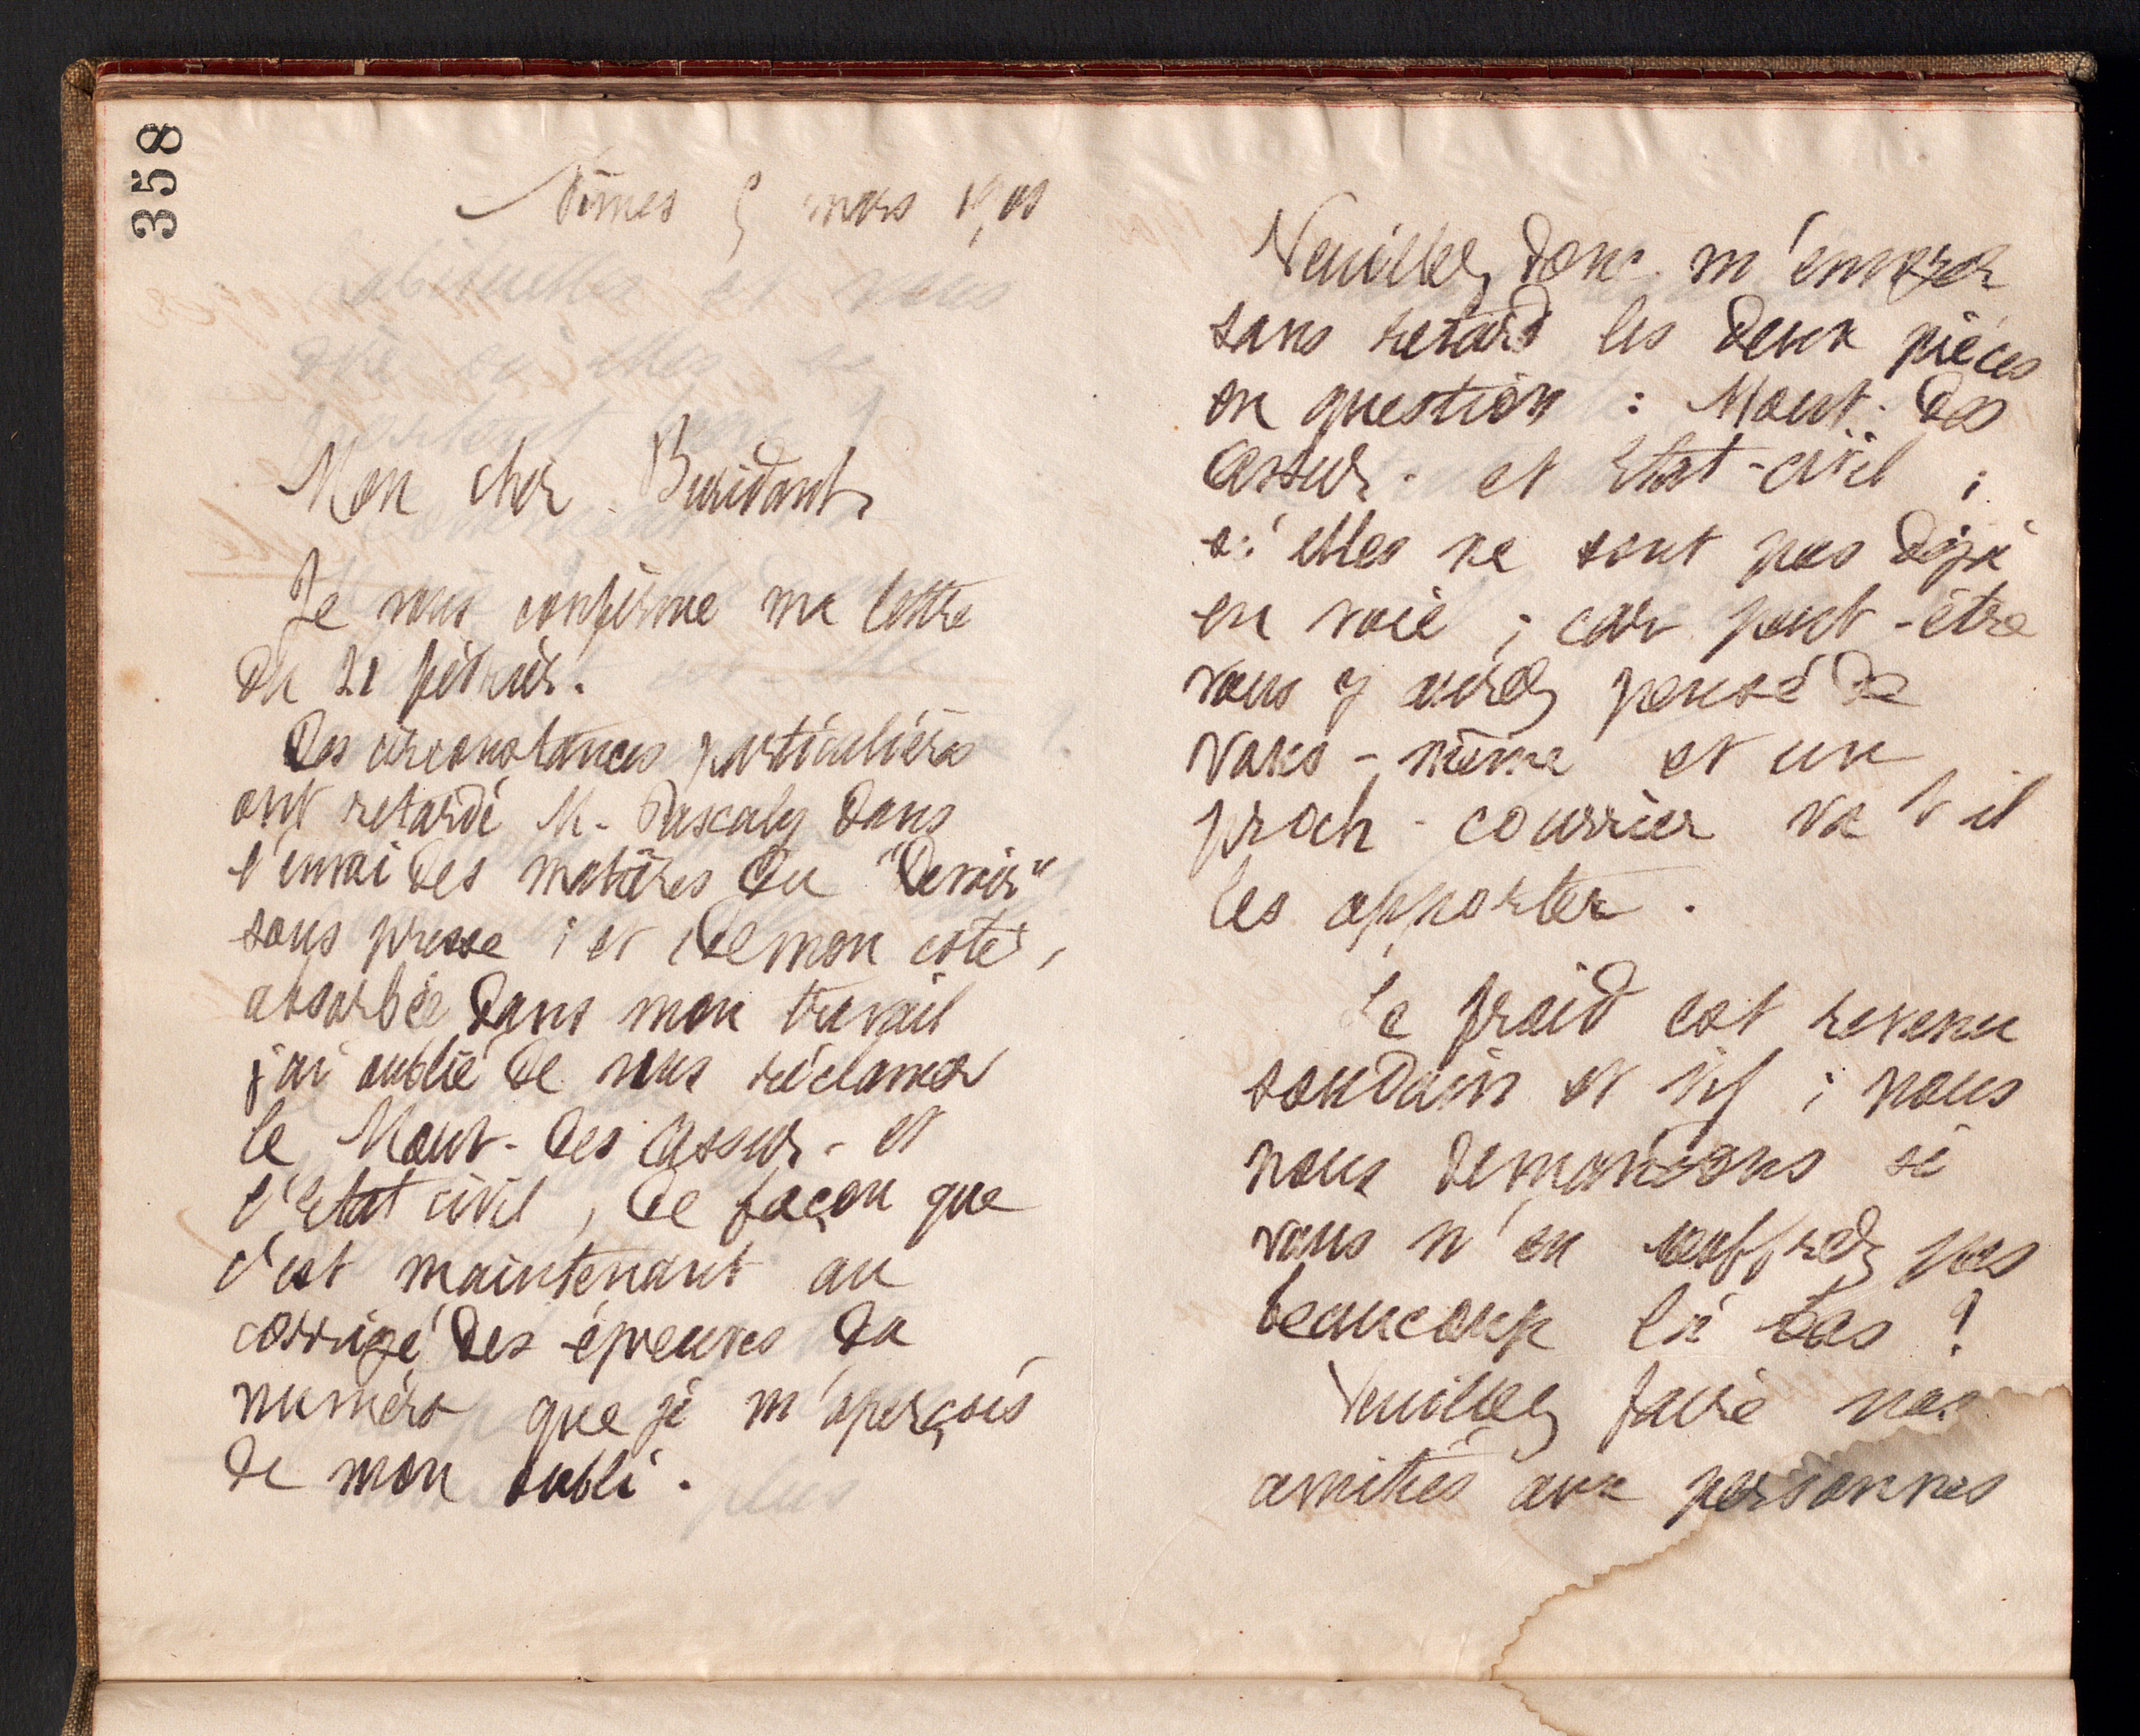 358
Nîmes 5 mars 1901
Mon cher Buridant,
Je vous confirme ma lettre
du 21 février.
Des circonstances particulières
ont retardé M. Pascaly dans
l'envoi des matières du "Devoir"
sous presse ; et de mon côté,
absorbée dans mon travail
j'ai oublié de vous réclamer
le Mout. des assur. et
l'Etat civil, de façon que
c'est maintenant au
corrigé des épreuves du
numéro que je m'aperçois
de mon oubli.
Veuillez donc m'envoyer
sans retard les deux pièces
en question : Mouv. des
assur. et Etat-civil ;
si elles ne sont pas déjà
en voie ; car peut-être
vous y aurez pensé de
vous-même et un
proch. courrier va t'il
les apporter.
Le froid est revenu
soudain et vif ; nous
nous demandons si
vous n'en souffrez pas
beaucoup là bas ?
Veuillez faire nos
amitiés aux personnes